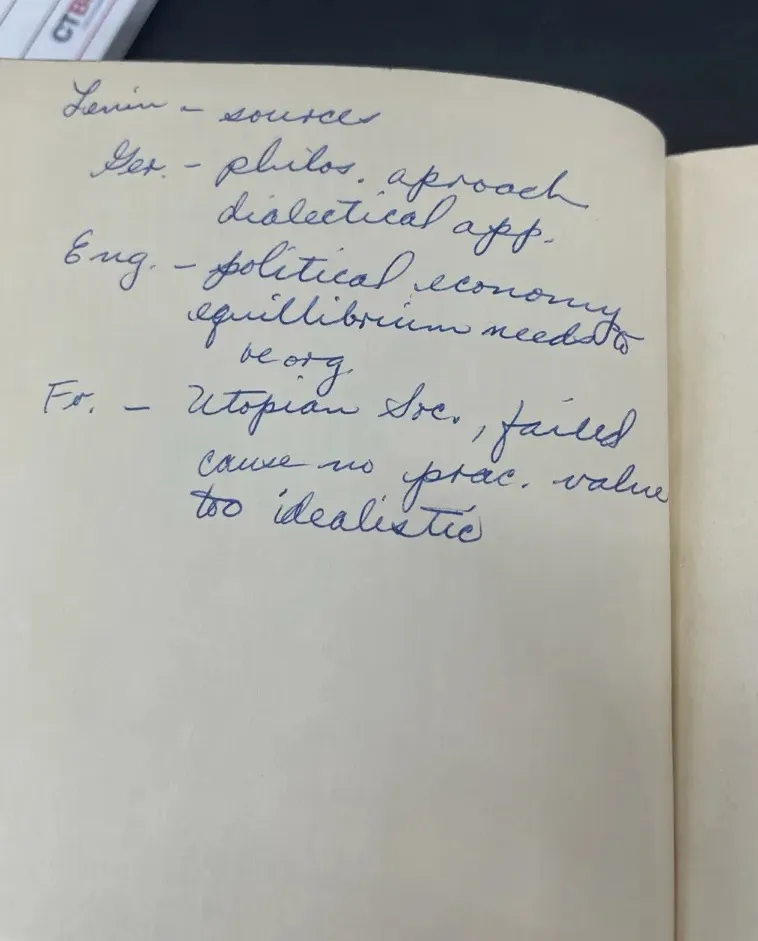 CTB
Lenin - sources
Ger. - philos. aproach
dialectical app.
Eng. - political economy
equillibrium needs to
be org.
Fr. - Utopian Soc., failed
cause no prac. value
too idealistic